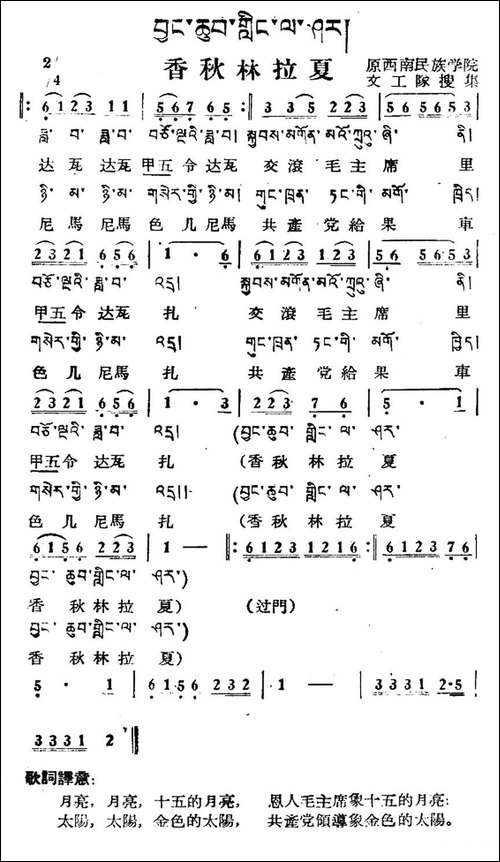 བྱང་ཆུབ་གླིང་ལ་ཤར།
香秋林拉夏
原西南民族学院
文工隊搜集
2/4
‖: 6123 11 | 567 65 :‖: 335 223 | 565653 |
ཟླ་བ་ ཟླ་བ་ བཅོ་ལྔའི་ཟླ་བ། སྐྱབས་མགོན་མའོ་ཀྲུའུ་ཞི་ ནི།
达瓦 达瓦 甲五令达瓦 交滾毛主席 里
ཉི་མ་ ཉི་མ་ གསེར་གྱི་ཉི་མ་ གུང་ཁྲན་ཏང་གི་མགོ་ ཁྲིད།
尼馬尼馬 色几尼馬 共產党給果 車
2321 656 | 1 · · | 6123 223 | 56 56·53 |
བཅོ་ལྔའི་ ཟླ་བ་ འདྲ། སྐྱབས་མགོན་མའོ་ཀྲུའུ་ཞི་ ནི།
甲五令 达瓦 扎 交滾毛主席 里
གསེར་གྱི་ ཉི་མ་ འདྲ། གུང་ཁྲན་ ཏང་གི་ མགོ་ ཁྲིད།
色几尼馬 扎 共產党給果 車
2321 656 | 1 · 3 | 2·23 7 6 | 5 · 1 |
བཅོ་ལྔའི་ ཟླ་བ་ འདྲ། (བྱང་ཆུབ་ གླིང་ ལ་ ཤར་
甲五令 达瓦 扎 (香秋林拉夏
གསེར་གྱི་ ཉི་མ་ འདྲ།། (བྱང་ཆུབ་ གླིང་ ལ་ ཤར་
色几尼馬 扎 (香秋林拉夏
6156 223 | 1 — ‖: 6123 1216 :‖: 6123 76 |
བྱང་ ཆུབ་གླིང་ལ་ ཤར་)
香秋林拉夏) (过門)
བྱང་ ཆུབ་གླིང་ལ་ ཤར་)
香秋林拉夏)
5 · 1 | 61·56 232 | ·1 — | 3331 2·5 |
3331 2 ‖
歌詞譯意:
月亮，月亮，十五的月亮， 恩人毛主席象十五的月亮；
太陽，太陽，金色的太陽， 共產党領導象金色的太陽。